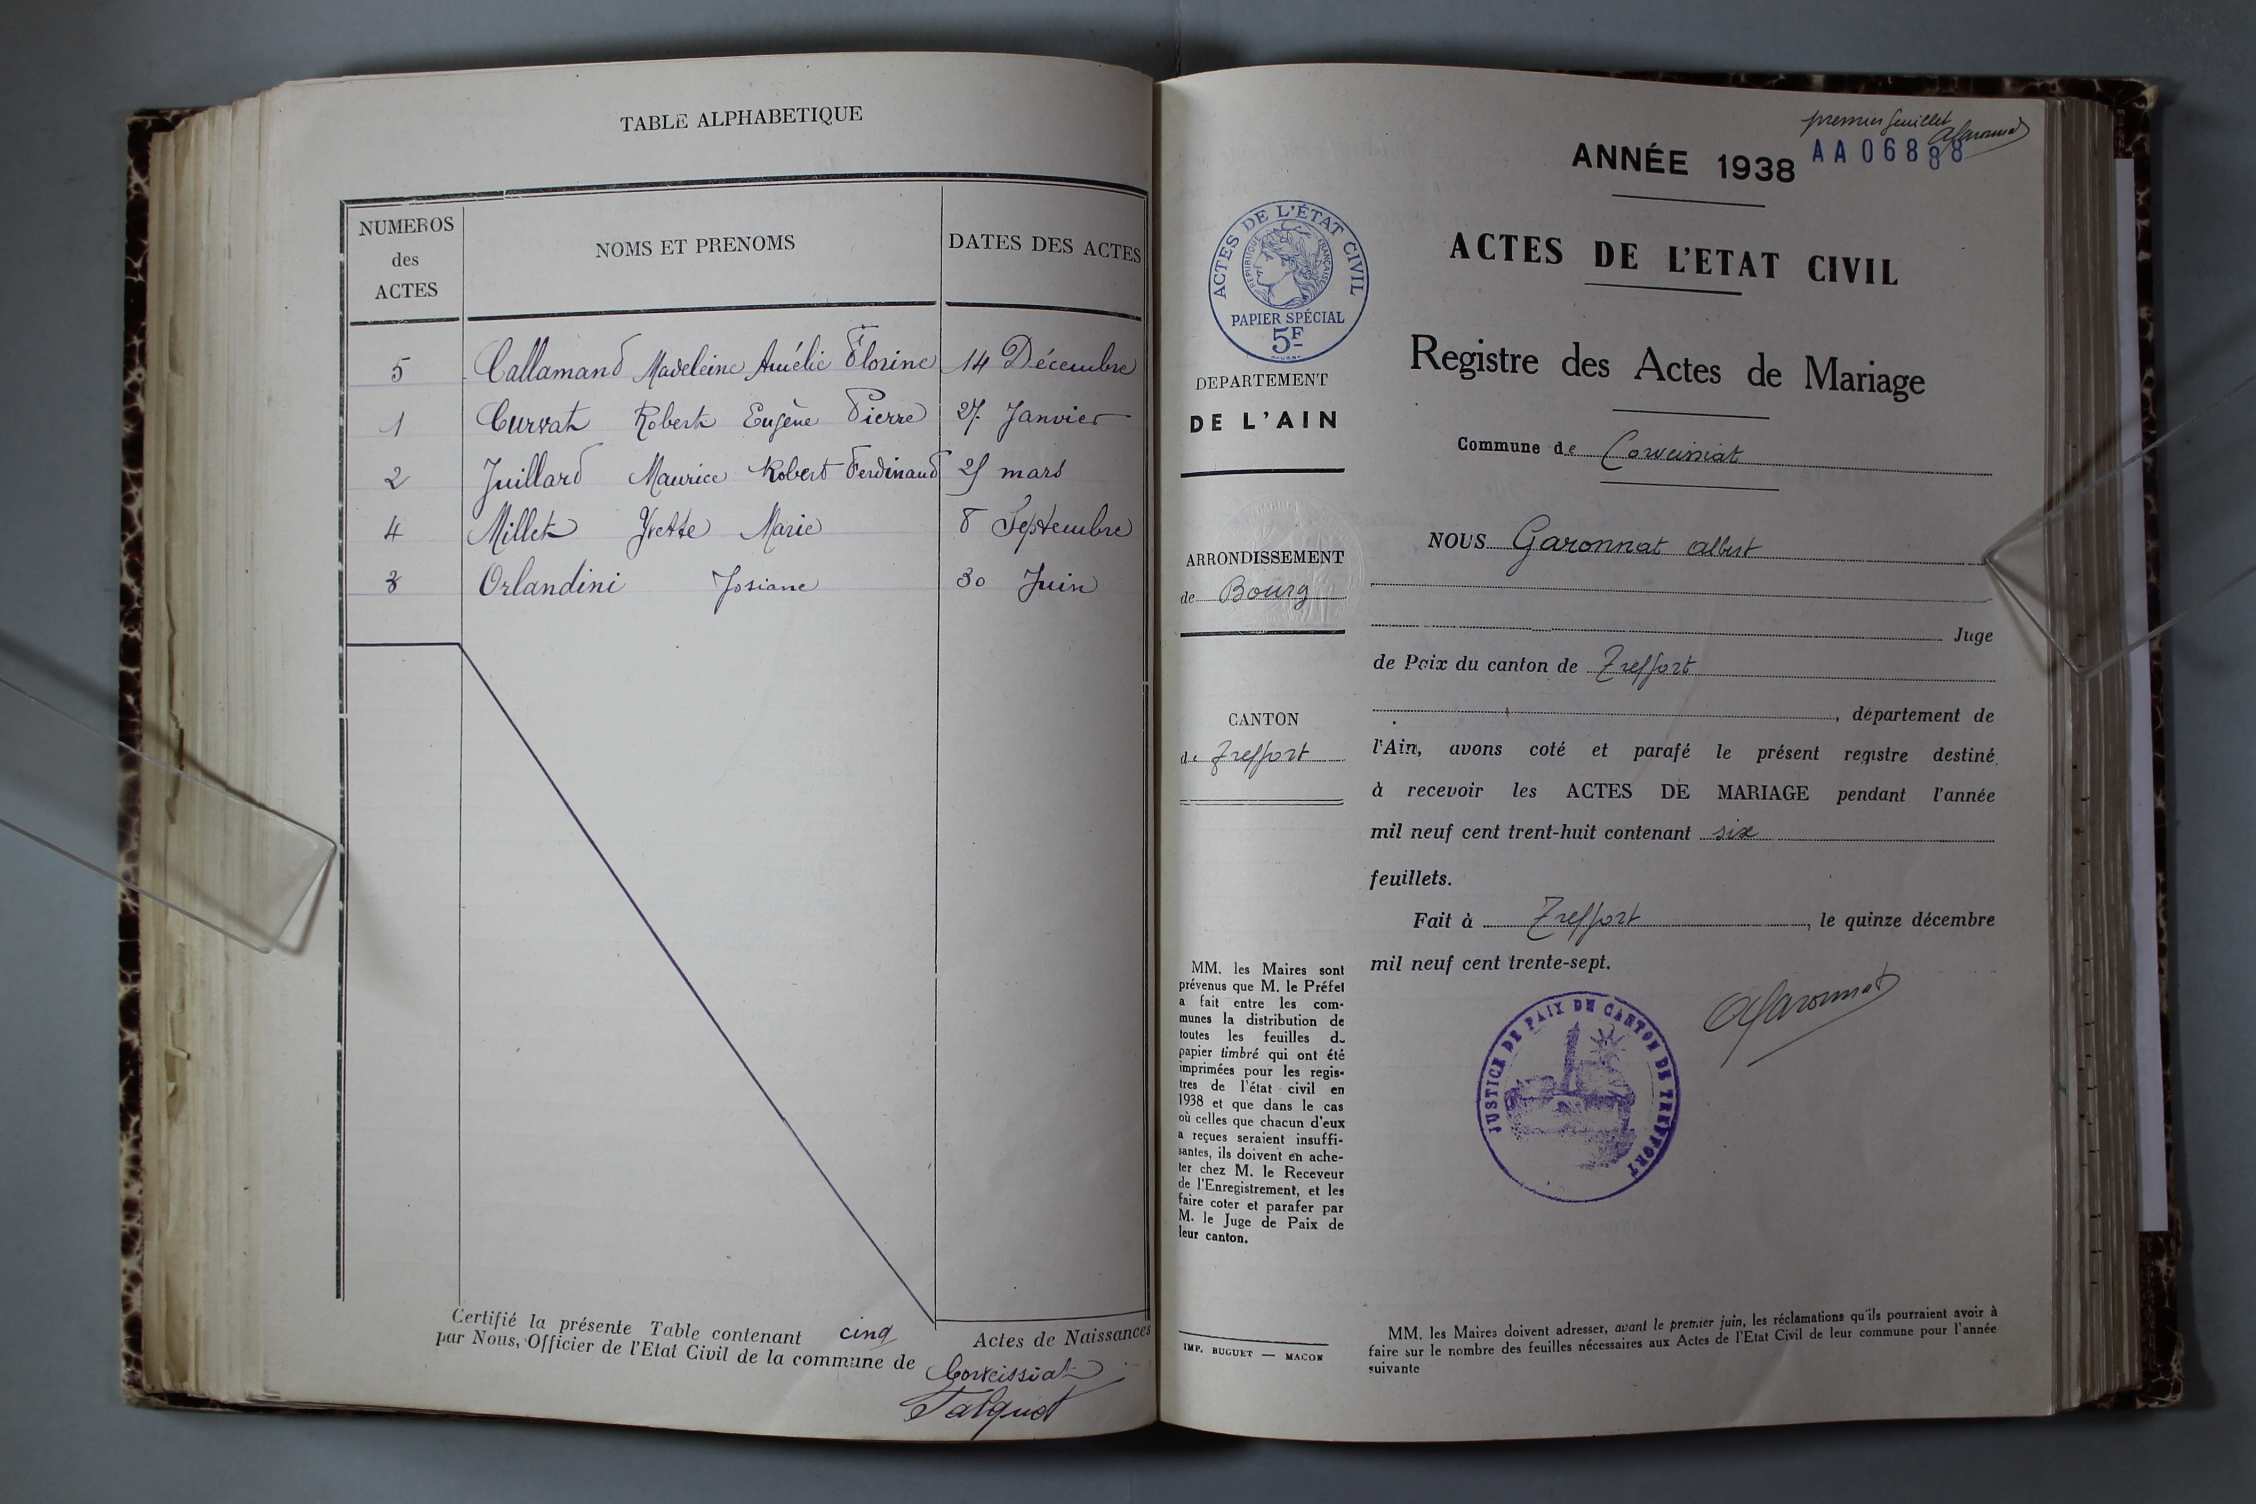 TABLE ALPHABETIQUE
NUMEROS
des
ACTES
NOMS ET PRENOMS
DATES DES ACTES
5 Callamand Madeleine Amélie Florine 14 Décembre
1 Curvat Robert Eugène Pierre 27 Janvier
2 Juillard Maurice Robert Ferdinand 25 mars
4 Millet Yvette Marie 8 Septembre
3 Orlandini Josiane 30 Juin
Certifié la présente Table contenant cinq Actes de Naissances
par Nous, Officier de l'Etat Civil de la commune de Corveissiat
premier feuillet
AGaronnat
ANNÉE 1938
AA06888
ACTES DE L'ÉTAT CIVIL
RÉPUBLIQUE FRANÇAISE
PAPIER SPÉCIAL
5F
DEPARTEMENT
DE L'AIN
ARRONDISSEMENT
de Bourg
CANTON
de Treffort
MM. les Maires sont
prévenus que M. le Préfet
a fait entre les com-
munes la distribution de
toutes les feuilles du
papier timbré qui ont été
imprimées pour les regis-
tres de l'état civil en
1938 et que dans le cas
où celles que chacun d'eux
a reçues seraient insuffi-
santes, ils doivent en ache-
ter chez M. le Receveur
de l'Enregistrement, et les
faire coter et parafer par
M. le Juge de Paix de
leur canton.
IMP. BUGUET — MACON
ACTES DE L'ETAT CIVIL
Registre des Actes de Mariage
Commune de Corveissiat
NOUS Garonnat Albert
Juge
de Paix du canton de Treffort
, département de
l'Ain, avons coté et parafé le présent registre destiné
à recevoir les ACTES DE MARIAGE pendant l'année
mil neuf cent trent-huit contenant six
feuillets.
Fait à Treffort, le quinze décembre
mil neuf cent trente-sept.
AGaronnat
JUSTICE DE PAIX DU CANTON DE TREFFORT
MM. les Maires doivent adresser, avant le premier juin, les réclamations qu'ils pourraient avoir à
faire sur le nombre des feuilles nécessaires aux Actes de l'Etat Civil de leur commune pour l'année
suivante